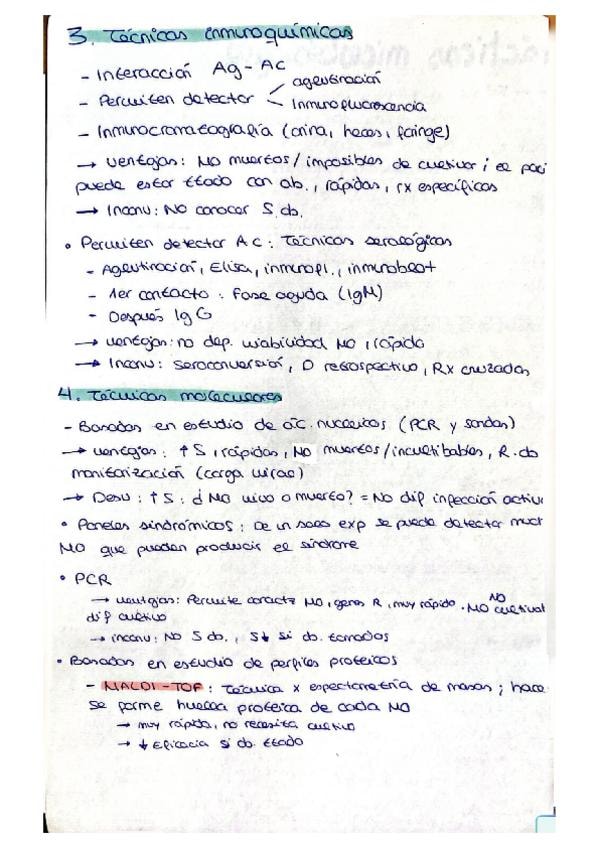 3. Técnicas inmunoquímicas
- Interacción Ag-Ac
- Permiten detectar aglutinación
Inmunofluorescencia
- Inmunocromatografía (orina, heces, faringe)
→ Ventajas: MO muertos/imposibles de cultivar; el paci
puede estar ttado con ab., rápidas, rx específicas
→ Inconv: NO conocer S. ab.
• Permiten detectar Ac: Técnicas serológicas
- Aglutinación, Elisa, inmunofl., inmunoblot
- 1er contacto: Fase aguda (IgM)
- Después IgG
→ ventajas: no dep. viabilidad MO, rápida
→ Inconv: seroconversión, D retrospectivo, Rx cruzadas
4. Técnicas moleculares
- Basadas en estudio de ác. nucleicos (PCR y sondas)
→ ventajas: ↑S, rápidas, MO muertos/incultibables, R. ab
monitorización (carga viral)
→ Desv: ↑S: ¿MO vivo o muerto? = No dif infección activa
• Paneles sindrómicos: De un solo exp se puede detectar much
MO que puedan producir el síndrome
• PCR
→ ventajas: Permite caractz MO, genes R, muy rápido. MO NO cultival
dif cultivo
→ inconv: No S ab., S↓ si ab. tomados
• Basadas en estudio de perfiles proteicos
- MALDI-TOF: Técnica x espectometría de masas; hace
se forme huella proteica de cada MO
→ muy rápida, no necesita cultivo
→ ↓ Eficacia si ab. ttado